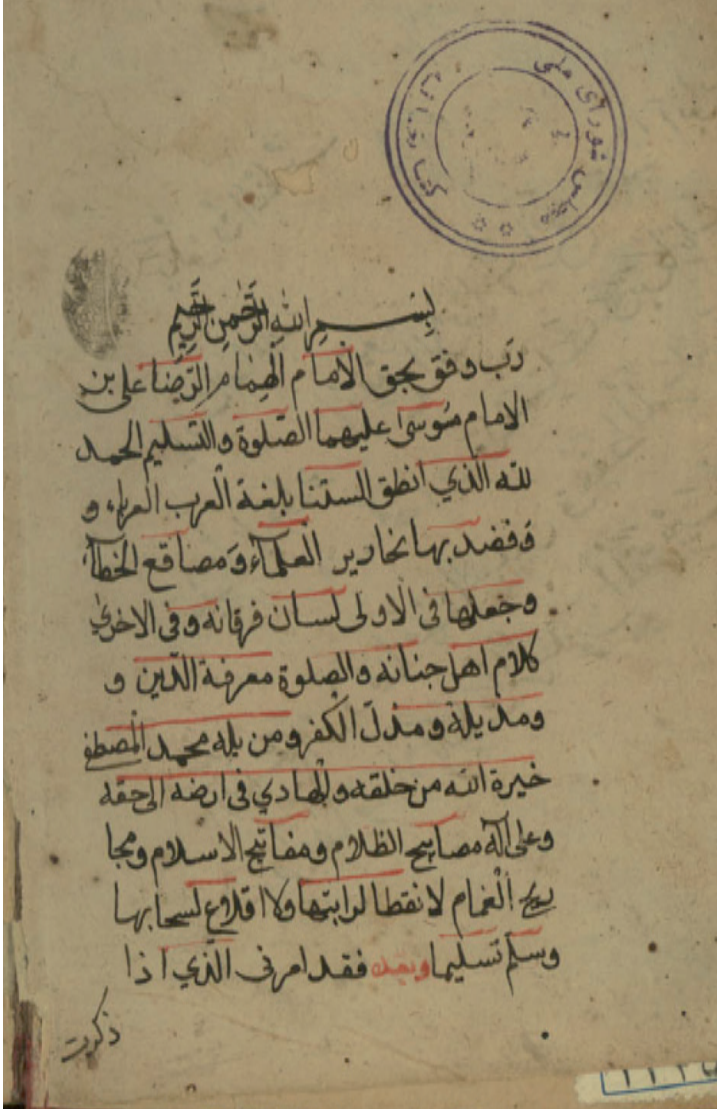 مجلس شورای ملی
بِسْمِ اللهِ الرَّحْمٰنِ الرَّحِيمِ
رب وفق بحق الامام الهمام الرضا على بن
الامام موسى عليهما الصلوة والتسليم الحمد
لله الذي انطق السنتنا بلغة العرب العرباء و
وفضد بها نحارير العلماء ومصاقع الخطباء
وجعلها فى الاولى لسان فرقانه وفى الاخرى
كلام اهل جنانه والصلوة معرفة الدين و
ومديله ومذل الكفر ومن يله محمد المصطفى
خيرة الله من خلقه والهادي فى ارضه الى حقه
وعلى آله مصابيح الظلام ومفاتيح الاسلام ومجا
ريح الغمام لا نقطا لرابتها ولا اقلاع لسحابها
وسلم تسليما وبعد فقد امرنى الذي اذا
ذكرت